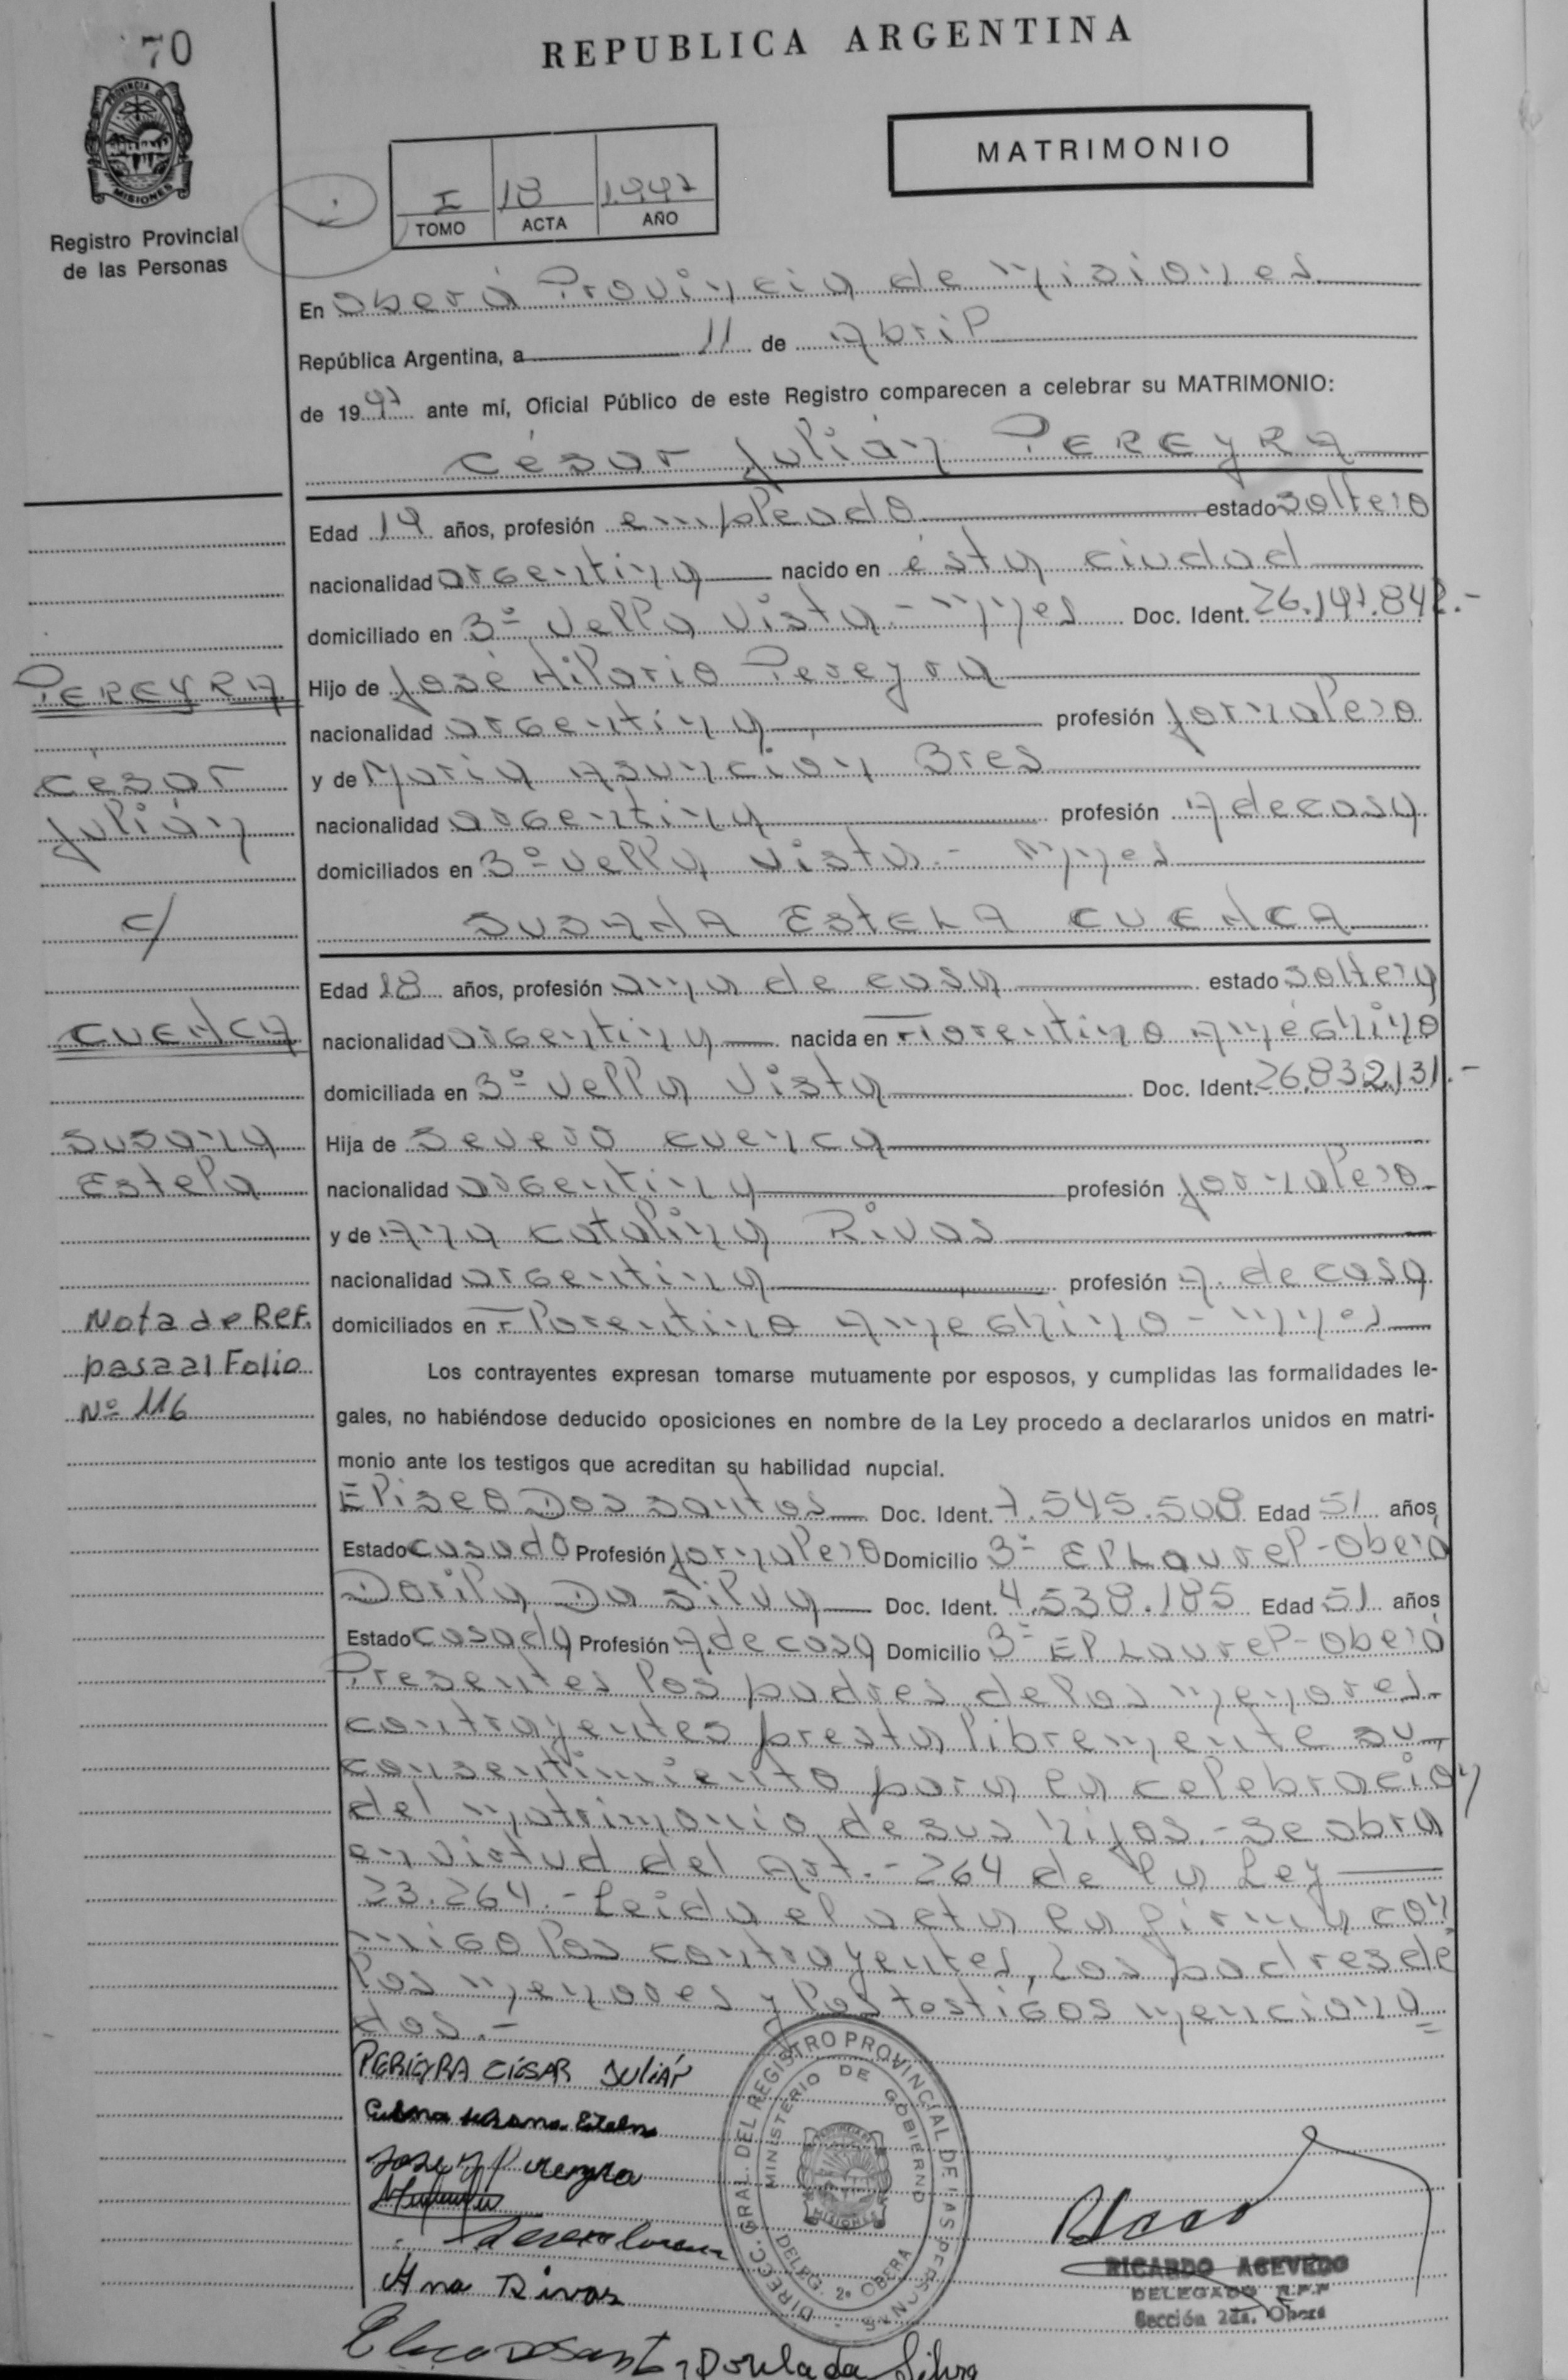 70
REPUBLICA ARGENTINA
PROVINCIA DE
MISIONES
Registro Provincial
de las Personas
MATRIMONIO
I 18 1.997
TOMO ACTA AÑO
En Oberá Provincia de Misiones
República Argentina, a 11 de Abril
de 1997 ante mí, Oficial Público de este Registro comparecen a celebrar su MATRIMONIO:
César Julián PEREYRA
Edad 19 años, profesión empleado estado soltero
nacionalidad argentina nacido en ésta ciudad
domiciliado en 3º Vella Vista - Mnes Doc. Ident. 26.197.842.-
PEREYRA
Hijo de José Hilario Pereyra
nacionalidad argentina profesión jornalero
César
y de María Asunción Bres
Julián
nacionalidad argentina profesión A de casa
domiciliados en 3º Vella Vista - Mnes
c/
SUSANA ESTELA CUENCA
Edad 18 años, profesión ama de casa estado soltera
CUENCA
nacionalidad argentina nacida en Florentino Ameghino
domiciliada en 3º Vella Vista Doc. Ident. 26.832.131.-
Susana
Hija de Severo Cuenca
Estela
nacionalidad argentina profesión jornalero
y de Ana Catalina Rivas
nacionalidad argentina profesión A. de casa
Nota de Ref.
domiciliados en Florentino Ameghino - Mnes
pasa al Folio
Los contrayentes expresan tomarse mutuamente por esposos, y cumplidas las formalidades le-
Nº 116
gales, no habiéndose deducido oposiciones en nombre de la Ley procedo a declararlos unidos en matri-
monio ante los testigos que acreditan su habilidad nupcial.
Eliseo Dos santos Doc. Ident. 7.545.508 Edad 51 años,
Estado casado Profesión jornalero Domicilio 3º El Laurel - Oberá
Dorila Da Silva Doc. Ident. 4.538.185 Edad 51 años
Estado casada Profesión A. de casa Domicilio 3º El Laurel - Oberá
Presentes los padres de los menores
contrayentes presta libremente su
consentimiento para la celebración
del matrimonio de sus hijos.- se obra
en virtud del Art.- 264 de la Ley
23.264.- Leida el acta la firma con
migo los contrayentes, los padres de
los menores y los testigos menciona=
dos.-
PEREYRA CÉSAR JULIÁN
Estela
Jose H Pereyra
Ana Rivas
Dorila da Silva
DIRECC. GRAL. DEL REGISTRO PROVINCIAL DE LAS PERSONAS
MINISTERIO DE GOBIERNO
MISIONES
DELEG. 2º OBERA
RICARDO ACEVEDO
DELEGADO R.P.P
Sección 2da. Oberá